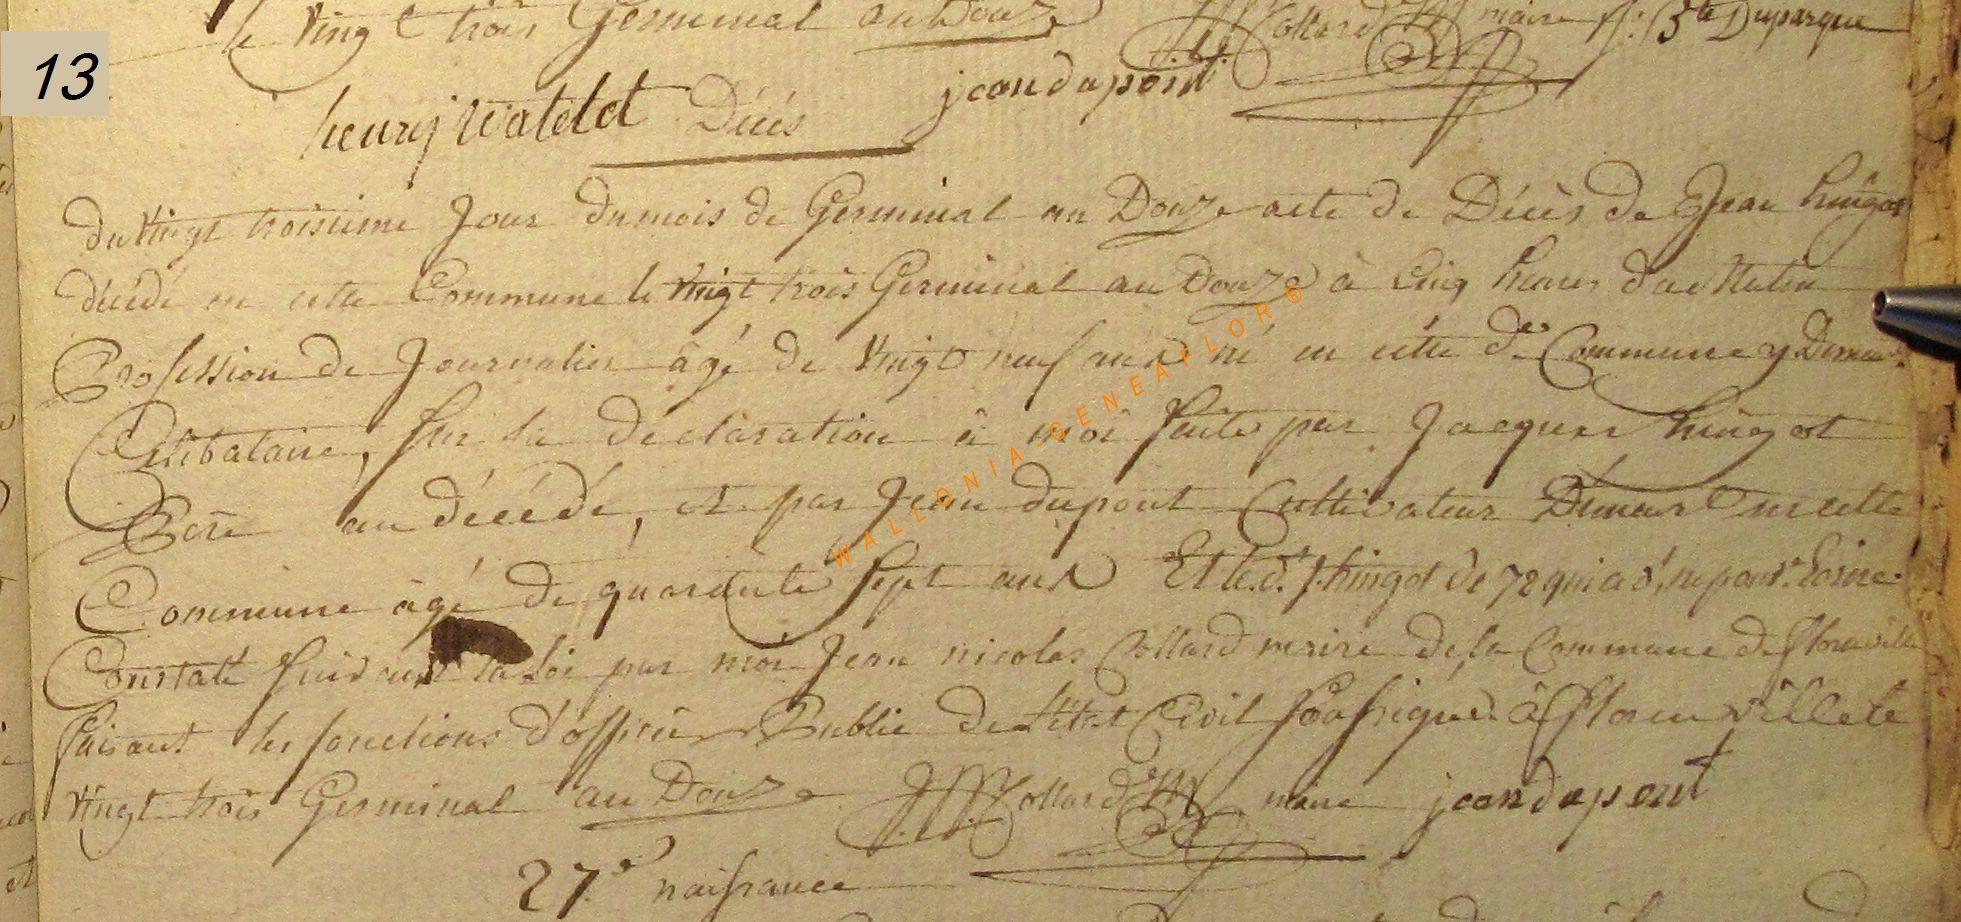 13
le vingt trois Germinal an Douze JN Collard maire
henry watelet Décès jean dupont
du vingt troisieme Jour du mois de Germinal an Douze acte de Décès de Jean hingot
décédé en cette Commune le vingt trois Germinal an Douze à Cinq heures du Matin
Profession de Journalier âgé de vingt neuf ans né en cette de Commune y Demeur.
Célibataire, sur la déclaration à moi faite par Jacques hingot
Pere au décédé, et par Jean dupont Cultivateur Demeurt en cette
Commune âgé de quarante Sept ans Et le d. J. hingot de 72 qui a d. ne pouvr. Ecrire
Constaté suivant la Loi par moi Jean nicolas Collard maire de la Commune de florenville
faisant les fonctions d'officier Public de l'état Civil soussigné. à florenville le
vingt trois Germinal an Douze JN Collard maire jean dupont
27.e naissance
WALLONIA-GENEAFLOR®